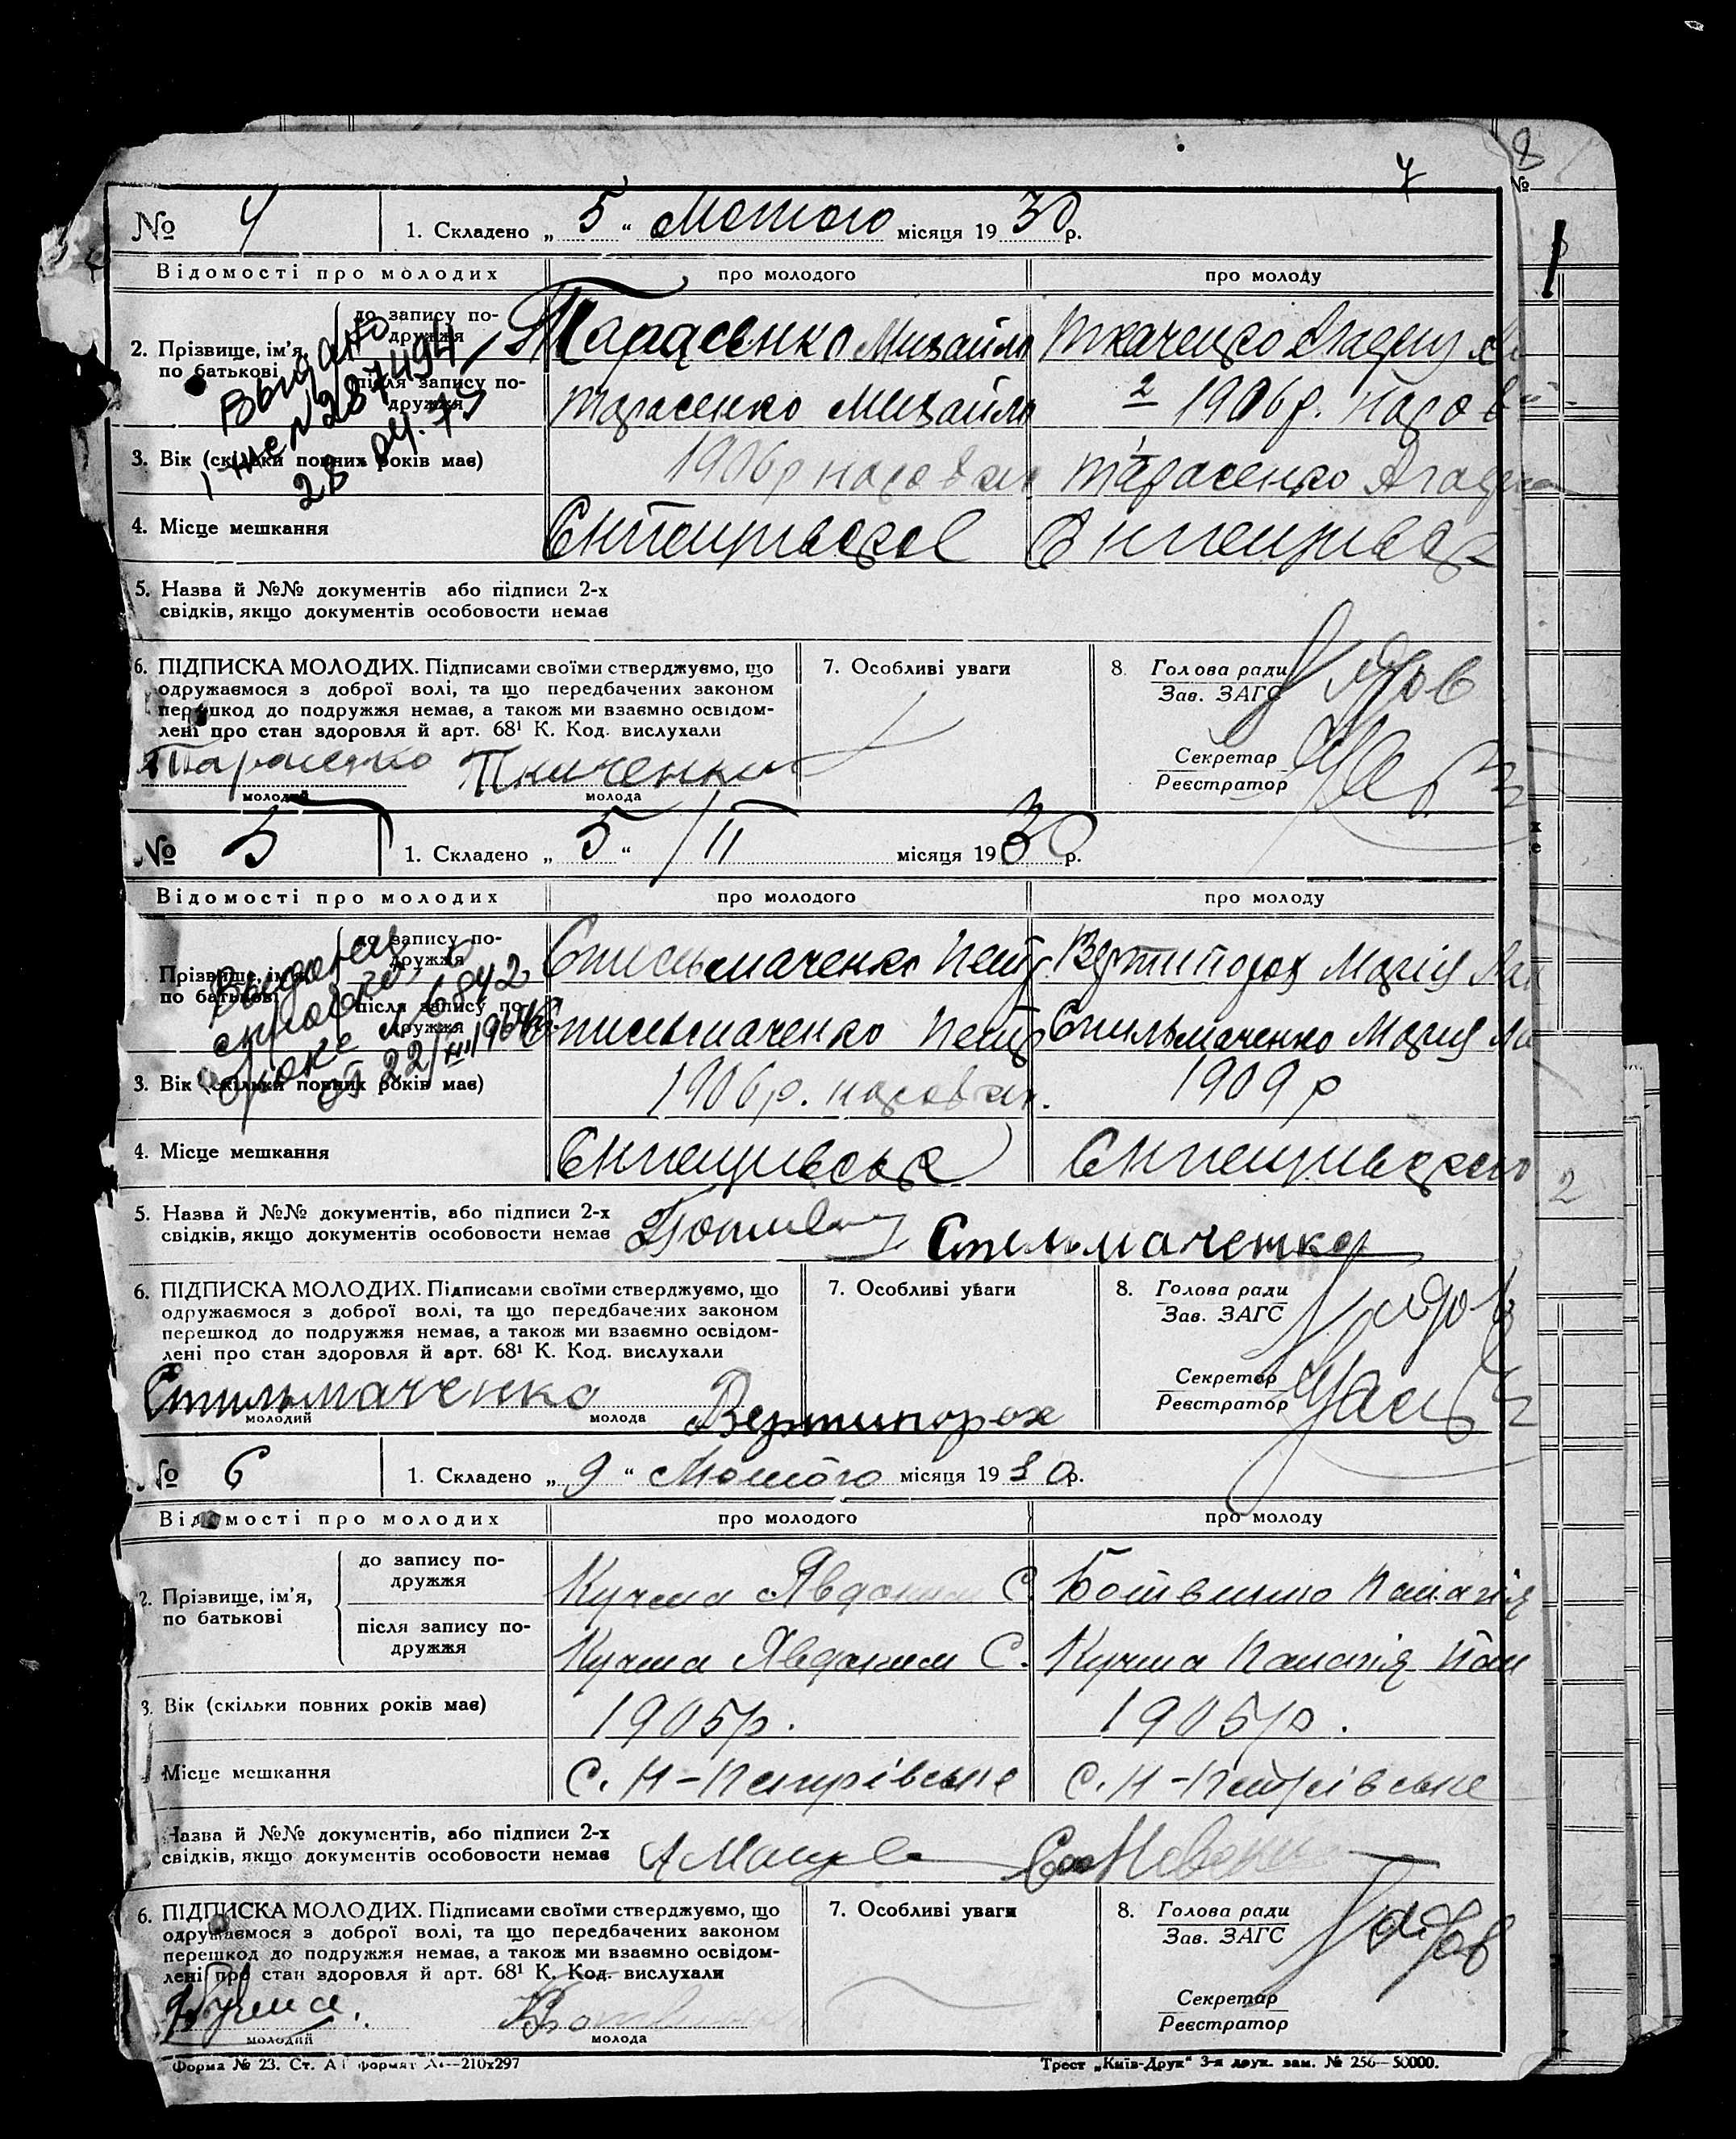 7
8
№
№ 4
1. Складено „ 5 “ Лютого місяця 1930 р.
Відомості про молодих
про молодого
про молоду
2. Прізвище, ім’я, по батькові
до запису по-
дружжя
Тарасенко Михайло
Ткаченко
після запису по-
дружжя
Тарасенко Михайло
1906 р.
Выдано
№ 287494
28 04.75
3. Вік (скільки повних років має)
1906 р
Тарасенко
4. Місце мешкання
5. Назва й №№ документів або підписи 2-х
свідків, якщо документів особовости немає
6. ПІДПИСКА МОЛОДИХ. Підписами своїми стверджуємо, що
одружаємося з доброї волі, та що передбачених законом
перешкод до подружжя немає, а також ми взаємно освідом-
лені про стан здоровля й арт. 68¹ К. Код. вислухали
Тарасенко Ткаченко
молодий
молода
7. Особливі уваги
8. Голова ради
Зав. ЗАГС
Секретар
Реєстратор
№ 5
1. Складено „ 5 “ /II місяця 1930 р.
Відомості про молодих
про молодого
про молоду
Прізвище, ім’я
по батькові
до запису по-
дружжя
Стильмаченко Петр
Вертипорох Марія
після запису по-
дружжя
Стильмаченко Петр
Стильмаченко Мария
о браке № 6842
22/XII
3. Вік (скільки повних років має)
1906 р.
1909 р
4. Місце мешкання
5. Назва й №№ документів, або підписи 2-х
свідків, якщо документів особовости немає
Стельмаченко
6. ПІДПИСКА МОЛОДИХ. Підписами своїми стверджуємо, що
одружаємося з доброї волі, та що передбачених законом
перешкод до подружжя немає, а також ми взаємно освідом-
лені про стан здоровля й арт. 68¹ К. Код. вислухали
Стильмаченко Вертипорох
молодий
молода
7. Особливі уваги
8. Голова ради
Зав. ЗАГС
Секретар
Реєстратор
2
№ 6
1. Складено „ 9 “ Лютого місяця 1930 р.
Відомості про молодих
про молодого
про молоду
2. Прізвище, ім’я,
по батькові
до запису по-
дружжя
Кучма Явдоким С.
Ботвинко Панагія
після запису по-
дружжя
Кучма Явдоким С.
Кучма Панагія
3. Вік (скільки повних років має)
1905 р.
1905 р.
Місце мешкання
с. Н-Петрівське
с. Н-Петрівське
Назва й №№ документів, або підписи 2-х
свідків, якщо документів особовости немає
6. ПІДПИСКА МОЛОДИХ. Підписами своїми стверджуємо, що
одружаємося з доброї волі, та що передбачених законом
перешкод до подружжя немає, а також ми взаємно освідом-
лені про стан здоровля й арт. 68¹ К. Код. вислухали
Кучма.
молодий
молода
7. Особливі уваги
8. Голова ради
Зав. ЗАГС
Секретар
Реєстратор
Форма № 23. Ст. А1 формат А4—210х297
Трест „Київ-Друк“ 3-я друк. зам. № 256—50000.